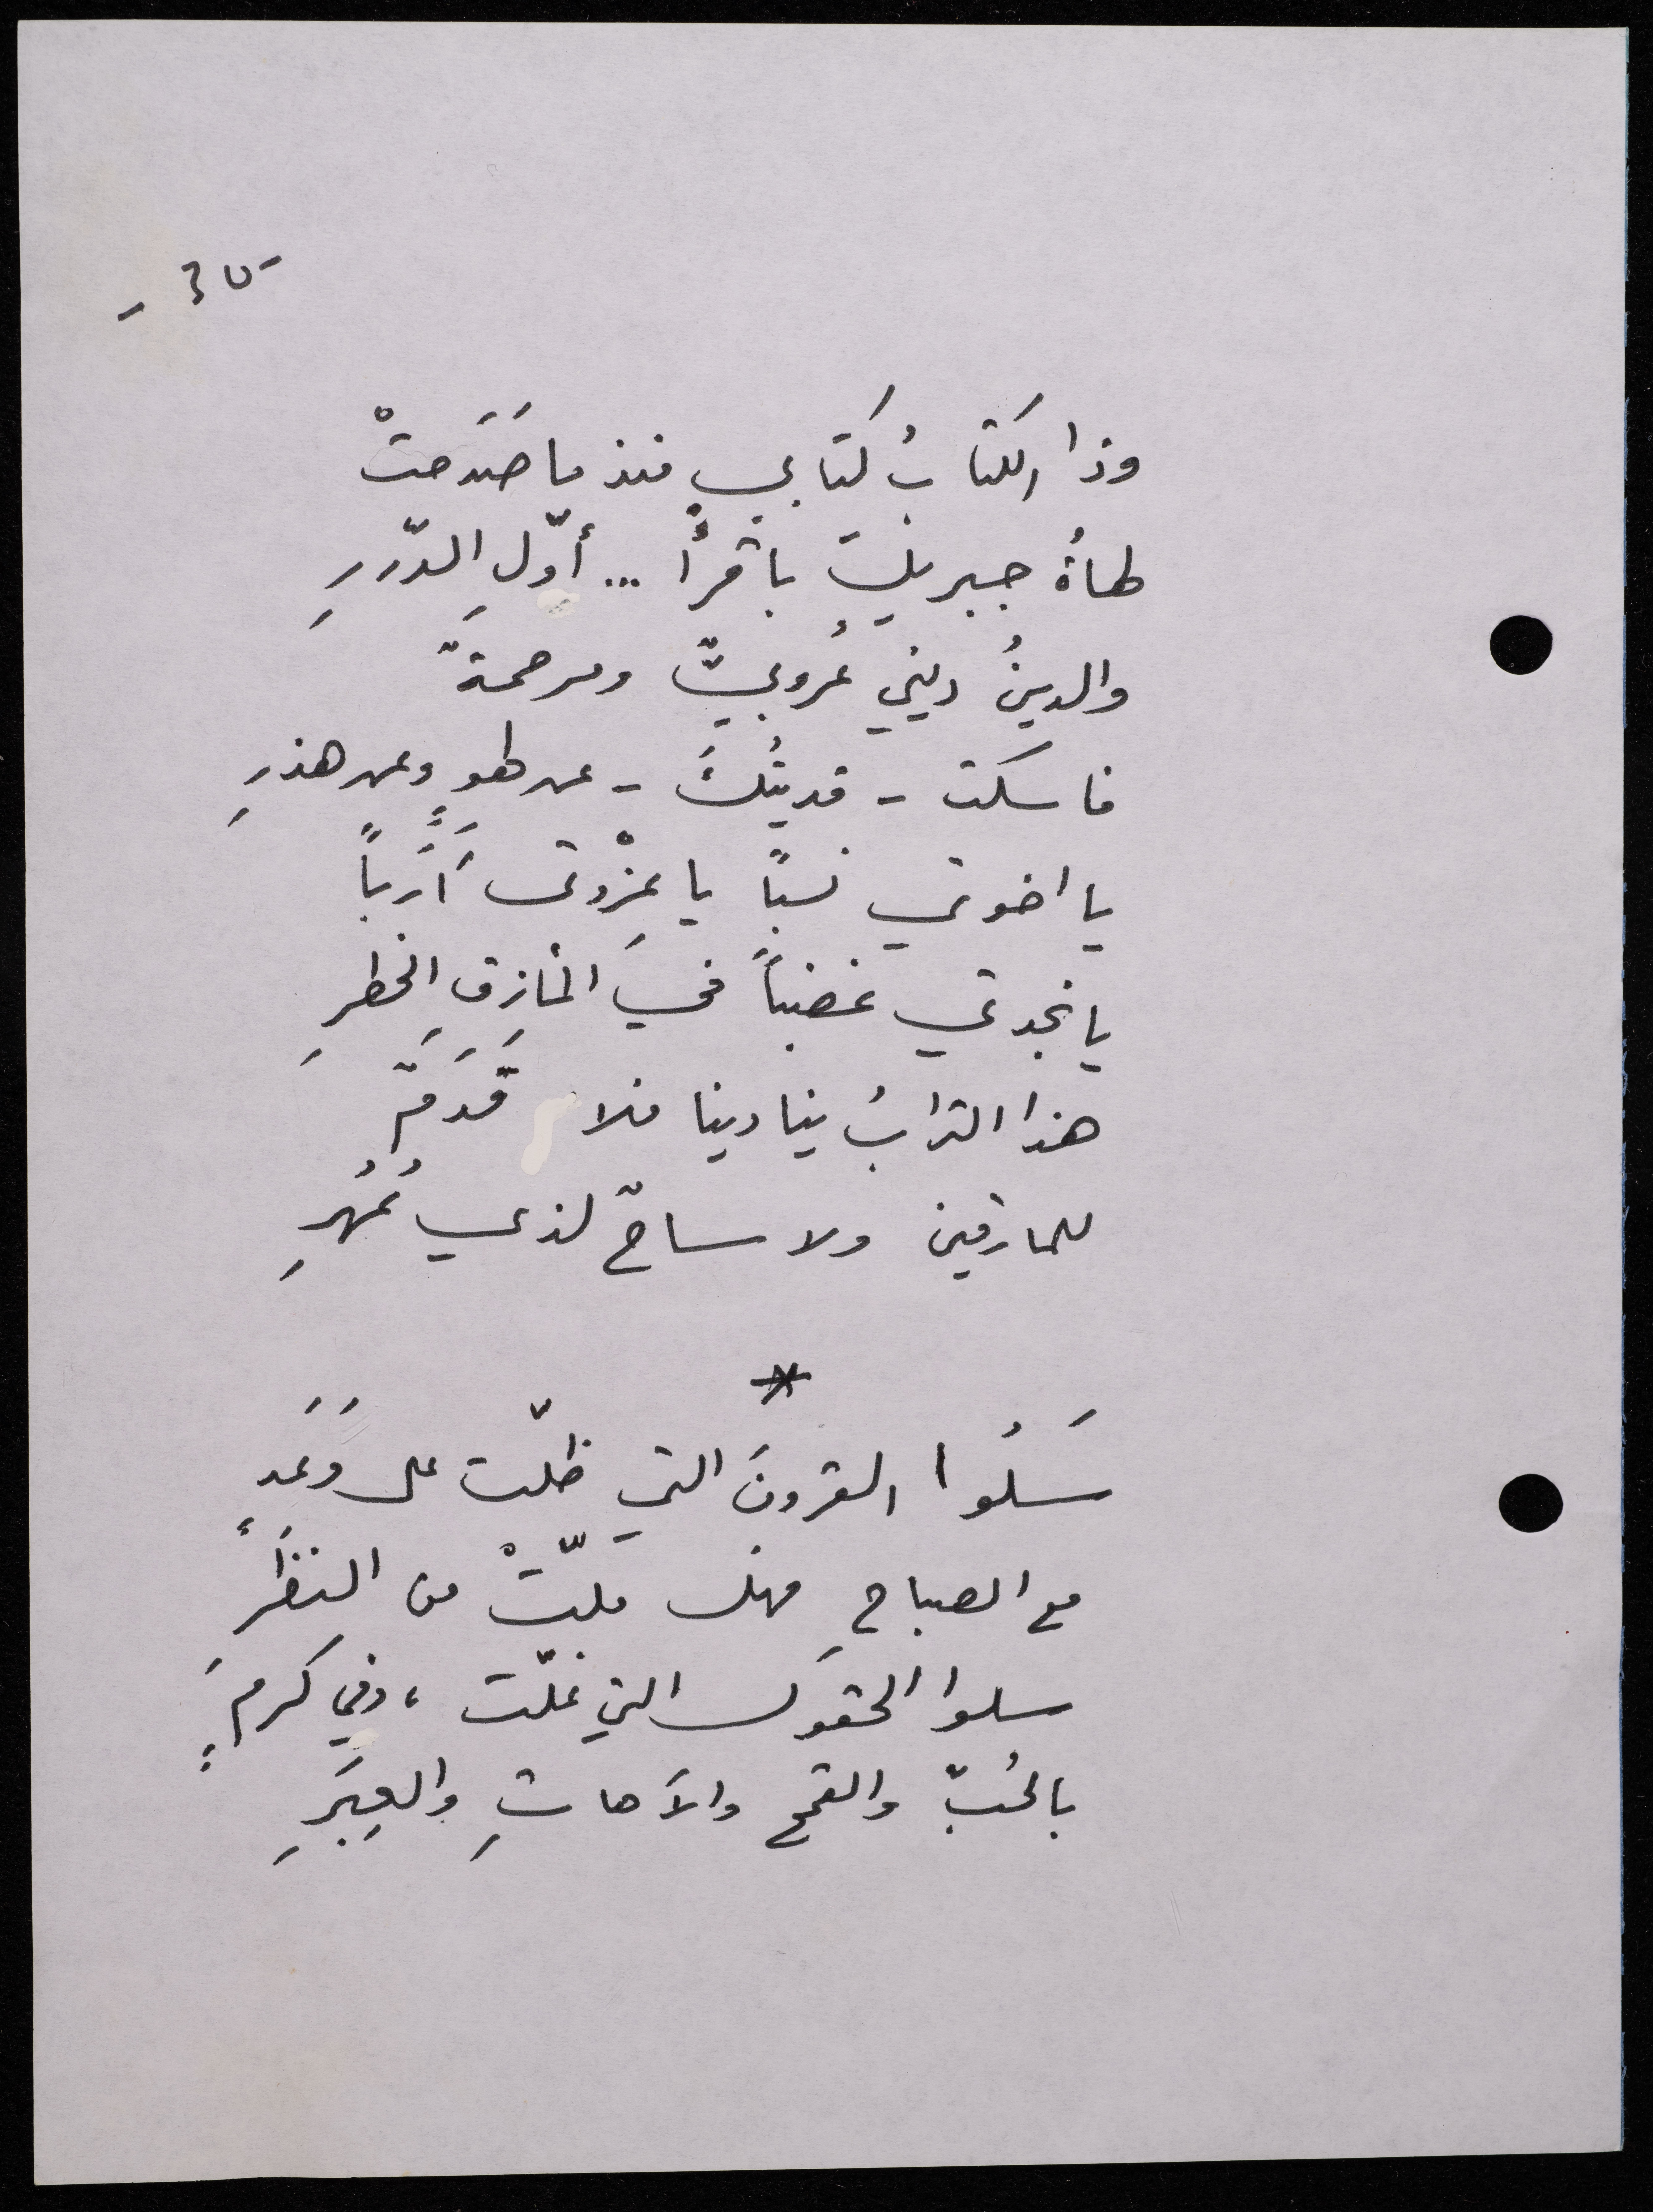 وذا الكتابُ كتابي منذ ما صَدَحَتْ
لهاةُ جبريلَ باقرأْ ... أوّلِ الدّررِ
والدينُ ديني عُروبيٌّ ومرحمةٌ
فاسكت - فديتُكَ - عن لهوٍ وعن هذرِ
يا اخوتي نسباً يا عِزْوتي أَرَباً
يا نجدتي غضباً في المأزقِ الخطرِ
هذا الترابُ ينادينا فلا قَدَمٌ
للمارقين ولا ساحٌ لذي عُهُرِ
*
سَلُوا القرونَ التي ظلّت على وَعَدٍ
مع الصباحِ فهل ملّتْ من النظَرِ
سلوا الحقولَ التي غلّت ، وفي كرمٍ
بالحُبّ والقمح والآهاتِ والعِبَرِ